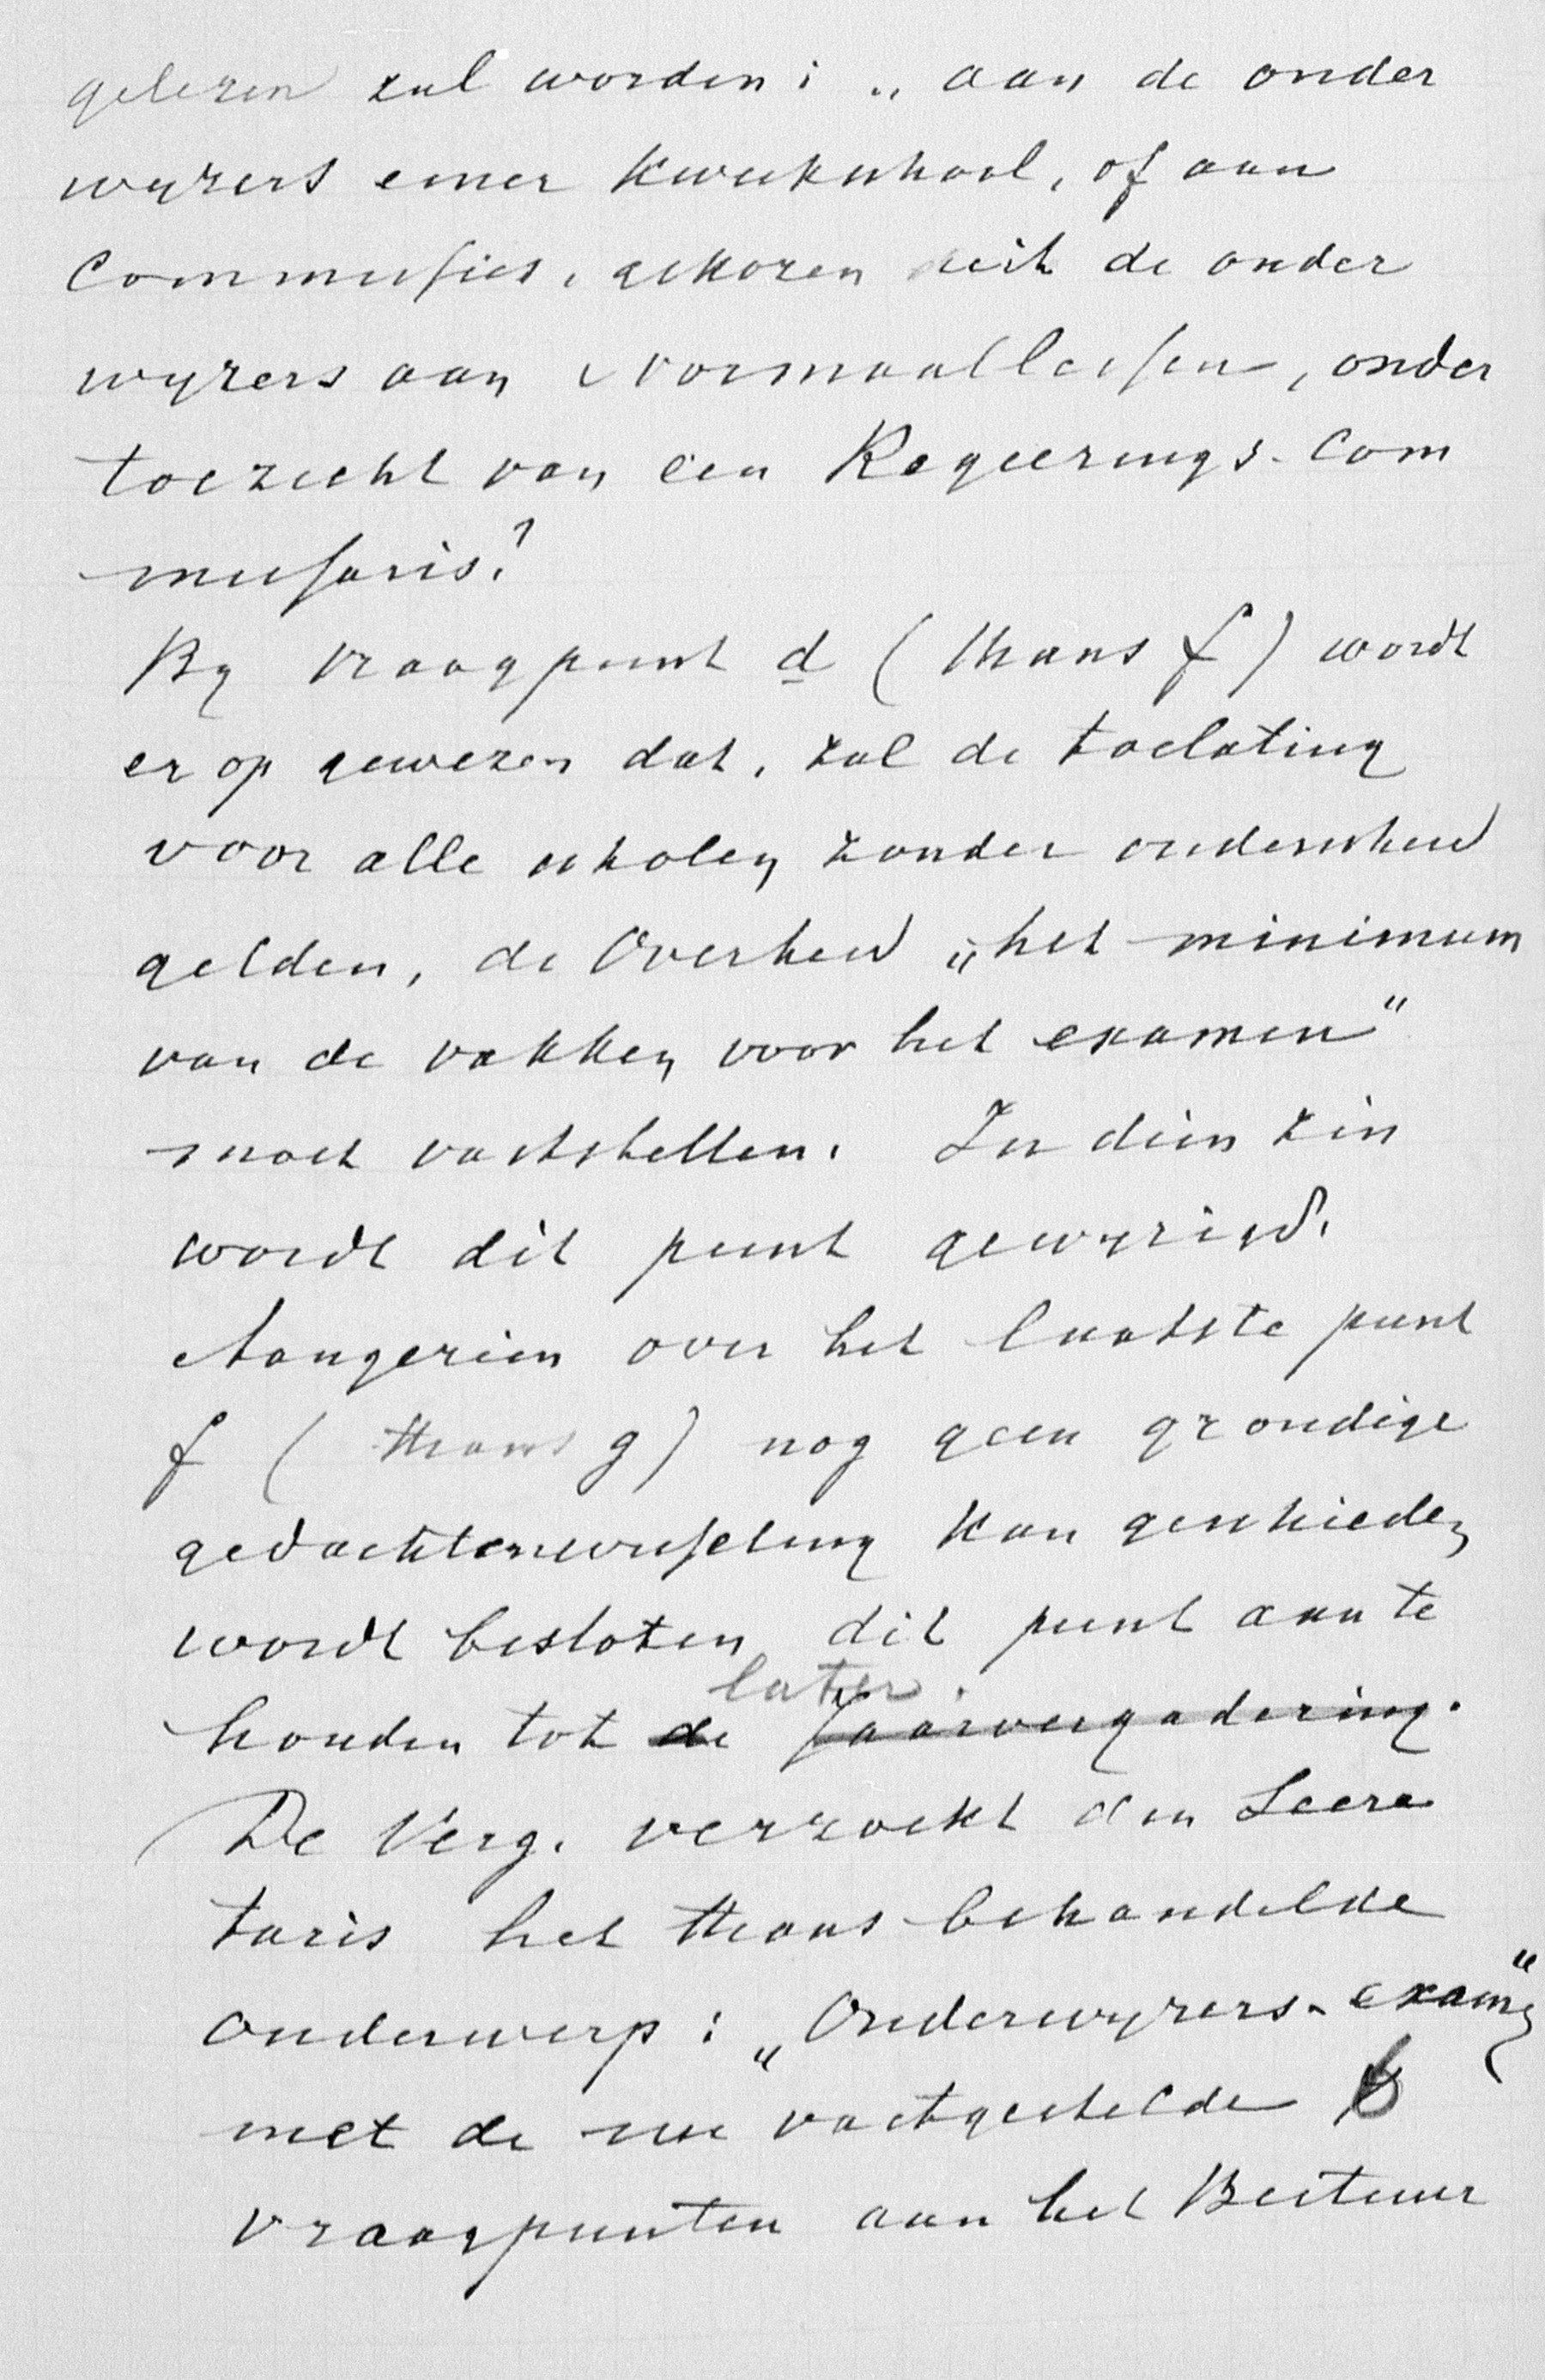 gelezen zal worden: „aan de onder
wijzers eener Kweekschool, of aan
Commissies, gekozen uit de onder
wijzers aan Normaallessen, onder
toezicht van een Regeerings-Com
missaris?
By vraagpunt d (thans f) wordt
er op gewezen dat, zal de toelating
voor alle scholen zonder onderscheid
gelden, de Overheid „het minimum
van de vakken voor het examen"
moet vaststellen. In dien zin
wordt dit punt gewyzigd.
Aangezien over het laatste punt
f (thans g) nog geen grondige
gedachtenwisseling kan geschieden
wordt besloten dit punt aan te
houden tot de Jaarvergadering. later.
De Verg. verzoekt den Secre
taris het thans behandelde
onderwerp: „Onderwyzers-examen"
met de nu vastgestelde 6
vraagpunten aan het Bestuur